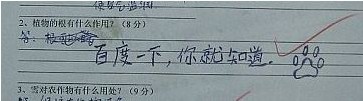 2、植物的根有什么作用？（8分）
答：
百度一下，你就知道.
3、雪对农作物有什么用处？（9分）